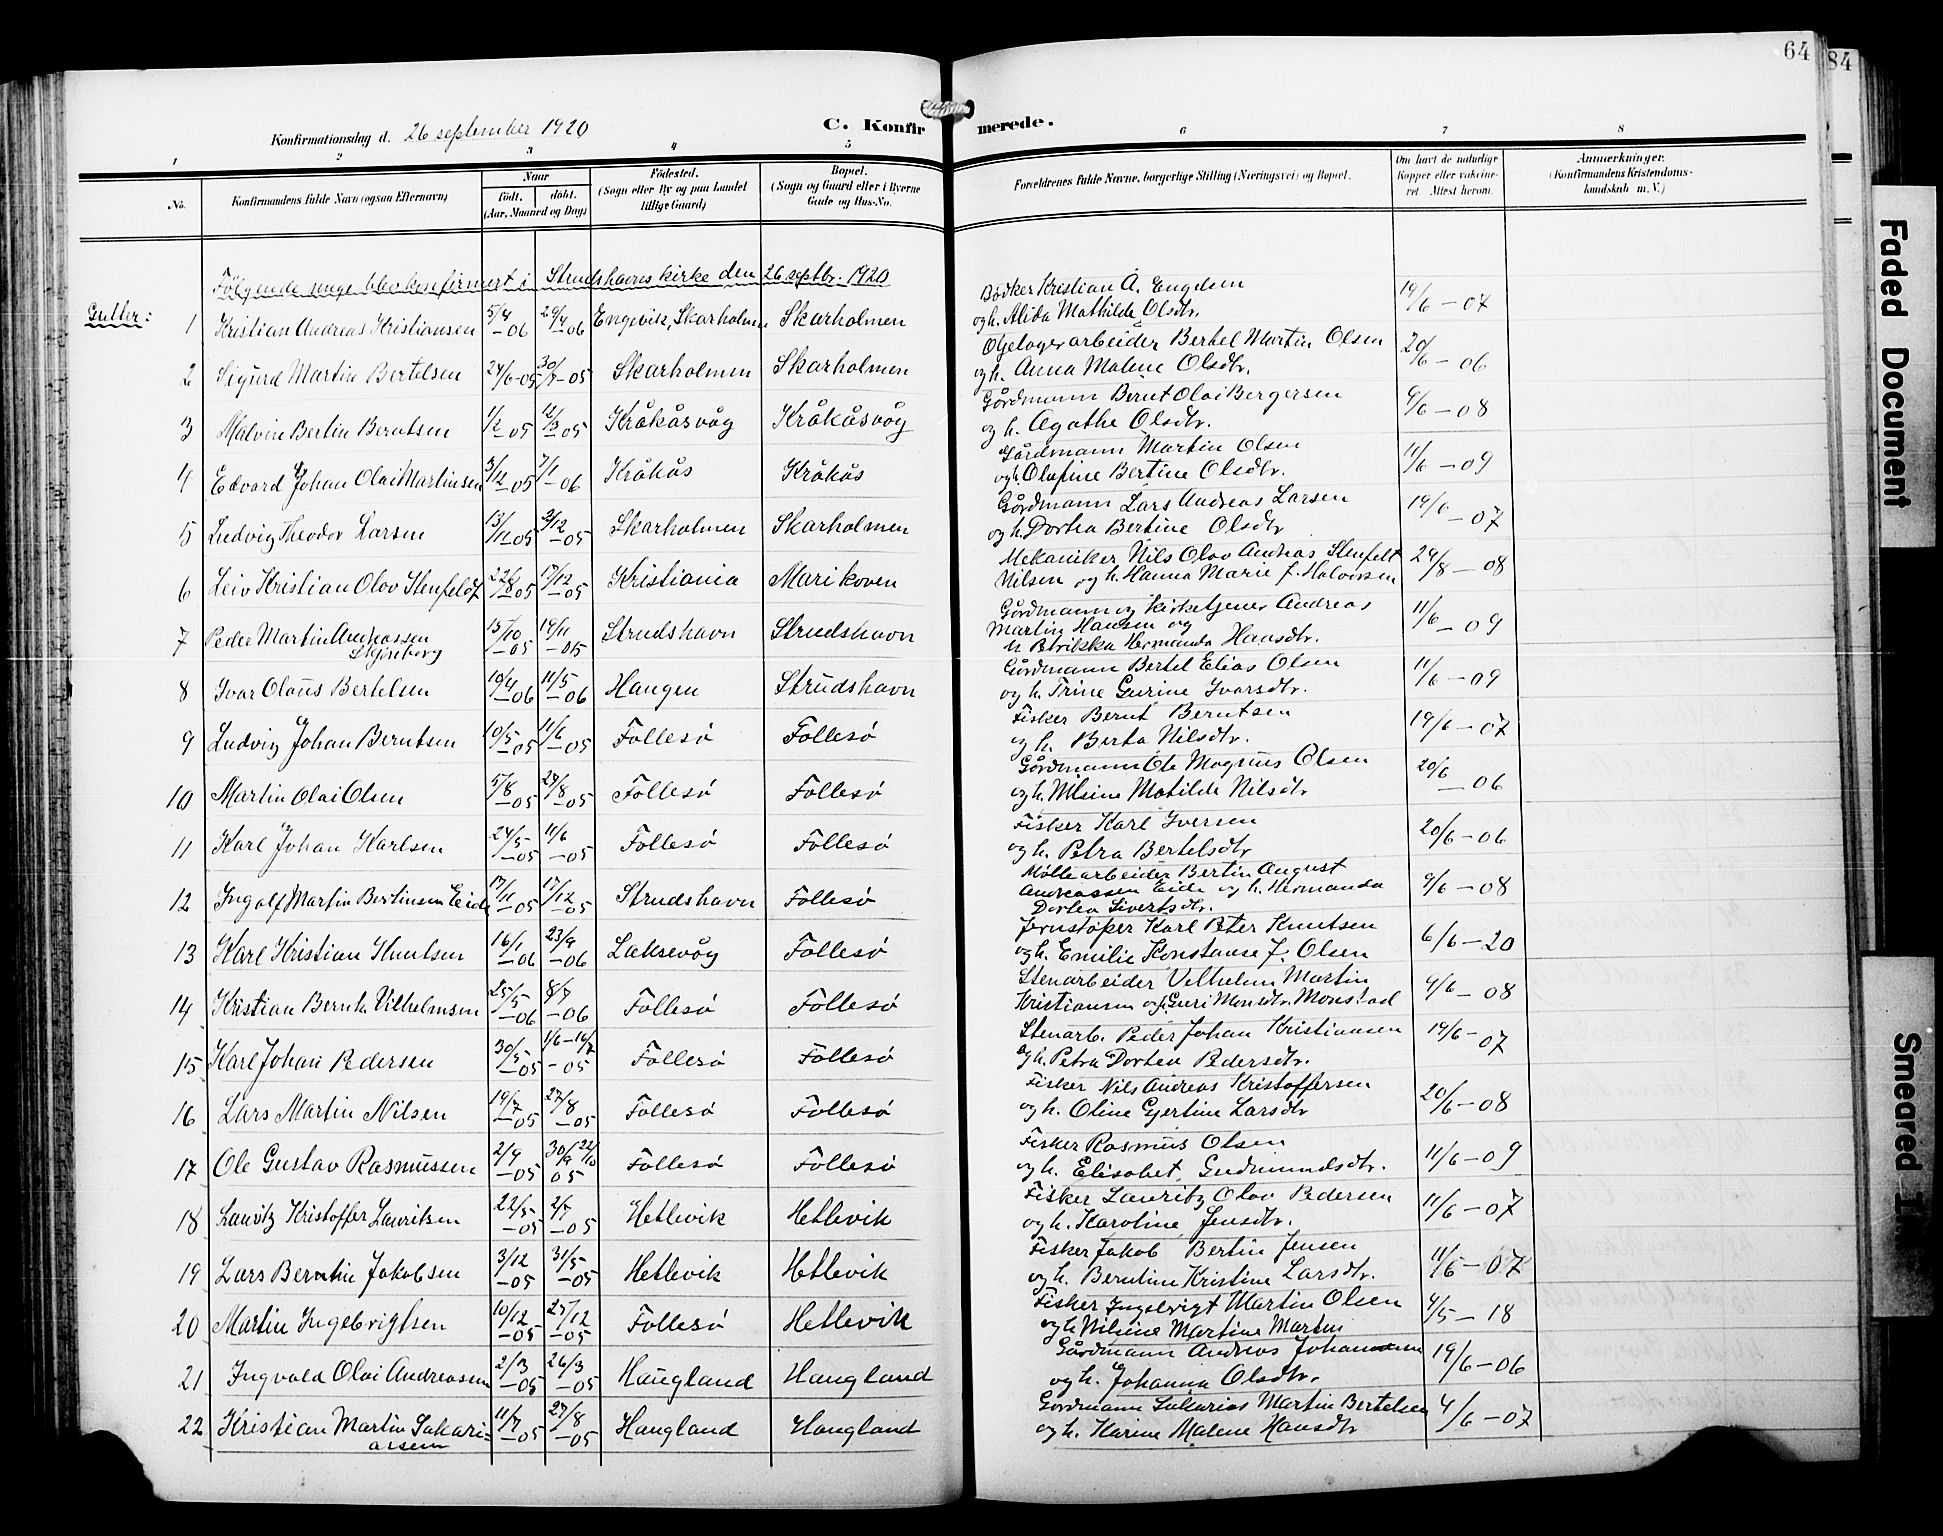 64
84
Konfirmationsdag d. 26 september 1920
C. Konfirmerede.
1 2 3 4 5 6 7 8
No.
Konfirmandens fulde Navn (ogsaa Efternavn)
Naar
født. døbt.
(Aar, Maaned og Dag)
Fødested.
(Sogn eller By og paa Landet
tillige Gaard)
Bopæl.
(Sogn og Gaard eller i Byerne
Gade og Hus-No.
Forældrenes fulde Navne, borgerlige Stilling (Næringsvei) og Bopæl.
Om havt de naturlige
Kopper eller vaccine-
ret. Attest herom.
Anmerkninger.
(Konfirmandens Kristendoms-
kundskab m. V.)
Følgende unge blev konfirmert i Strudshavns kirke den 26 septbr. 1920
Gutter:
1 Kristian Andreas Kristiansen 5/4 –06 29/4 –06 Engevik, Skarholmen Skarholmen Bødker Kristian A. Engelsen 19/6 – 07
og h. Alida Mathilde Olsdtr.
2 Sigurd Martin Bertelsen 24/6 –05 30/7 –05 Skarholmen Skarholmen Oljelagerarbeider Bertel Martin Olsen 20/6 – 06
og h. Anna Malene Olsdtr.
3 Malvin Bertin Berntsen 1/2 –05 12/3 –05 Kråkåsvåg Kråkåsvåg Gårdmann Bernt Olai Bergersen 9/6 – 08
og h. Agathe Olsdtr.
4 Edvard Johan Olai Martinsen 3/12 –05 7/1 –06 Kråkås Kråkås Gårdmann Martin Olsen 11/6 – 09
og h. Olafine Bertine Olsdtr.
5 Ludvig Theodor Larsen 13/11 –05 3/12 –05 Skarholmen Skarholmen Gårdmann Lars Andreas Larsen 19/6 – 07
og h. Dortea Bertine Olsdtr
6 Leiv Kristian Olov Stenfeldt 22/8 –05 17/12 –05 Kristiania Marikoven Mekaniker Nils Olov Andreas Stenfelt 24/8 – 08
Nilsen og h. Hanna Marie f. Halvorsen
7 Peder Martin Andreassen 15/10 –05 19/11 –05 Strudshavn Strudshavn Gårdmann og Kirketjener Andreas 11/6 – 09
Martin Hansen og
h. Hermanda Hansdtr.
8 Ivar Olaus Bertelsen 19/4 –06 11/5 –06 Haugen Strudshavn Gårdmann Bertel Elias Olsen 11/6 – 09
og h. Trine Gurine Ivarsdtr.
9 Ludvig Johan Berntsen 10/5 –05 11/6 –05 Follesø Follesø Fisker Bernt Berntsen 19/6 – 07
og h. Berta Nilsdtr.
10 Martin Olai Olsen 5/8 –05 29/8 –05 Follesø Follesø Gårdmann Ole Magnus Olsen 20/6 – 06
og h. Nilsine Matilde Nilsdtr
11 Karl Johan Karlsen 24/5 –05 11/6 –05 Follesø Follesø Fisker Karl Iversen 20/6 – 06
og h. Petra Bertelsdtr
12 Ingolf Martin Bertinsen Eide 17/11 –05 17/12 –05 Strudshavn Follesø Møllearbeider Bertin August 9/6 – 08
Andreassen Eide og h. Hermanda
Dortea Sivertsdtr.
13 Karl Kristian Knutsen 16/1 –06 23/9 –06 Laksevåg Follesø Jernstøper Karl Peter Knutsen 6/6 – 20
og h. Emilie Konstanse f. Olsen
14 Kristian Bernh. Vilhelmsen 25/5 –06 8/7 –06 Follesø Follesø Stenarbeider Vilhelm Martin 9/6 – 08
Kristiansen og h. Guri Monsdtr. Monstad
15 Karl Johan Pedersen 30/5 –05 1/6–16/7 –05 Follesø Follesø Stenarb. Peder Johan Kristiansen 19/6 – 07
og h. Petra Dortea Pedersdtr.
16 Lars Martin Nilsen 19/7 –05 27/8 –05 Follesø Follesø Fisker Nils Andreas Kristoffersen 20/6 – 08
og h. Oline Gjertine Larsdtr
17 Ole Gustav Rasmussen 2/9 –05 30/9 22/10 05 Follesø Follesø Fisker Rasmus Olsen 11/6 – 09
og h. Elisabet Gudmundsdtr.
18 Lauritz Kristoffer Lauritsen 22/5 –05 2/7 –05 Hetlevik Hetlevik Fisker Lauritz Olov Pedersen 11/6 – 07
og h. Karoline Jensdtr.
19 Lars Berntin Jakobsen 3/12 –05 31/5 –05 Hetlevik Hetlevik Fisker Jakob Bertin Jensen 11/6 – 07
og h. Berntine Kristine Larsdtr.
20 Martin Ingebrigtsen 10/12 –05 25/12 –05 Follesø Hetlevik Fisker Ingebrigt Martin Olsen 4/5 – 18
og h. Nilsine Martine
21 Ingvald Olai Andreasen 2/3 –05 26/3 –05 Haugland Haugland Gårdmann Andreas Johannesen 19/6 – 06
og h. Johanna Olsdtr.
22 Kristian Martin Sakari= 11/7 –05 27/8 –05 Haugland Haugland Gårdmann Sakarias Martin Bertelsen 4/6 – 07
assen og h. Karine Malene Hansdtr
Faded Document
Smeared